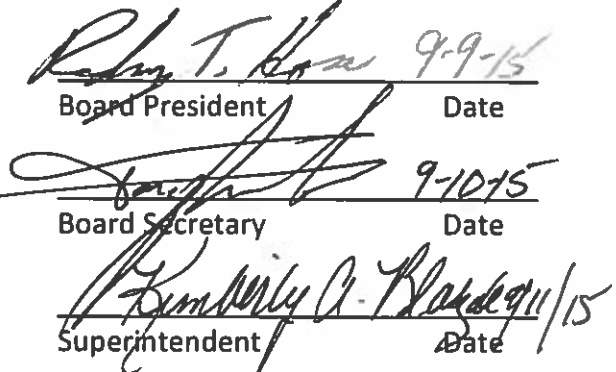 T. 9-9-15
Board President Date
9-10-15
Board Secretary Date
Kimberly A. 9/11/15
Superintendent Date